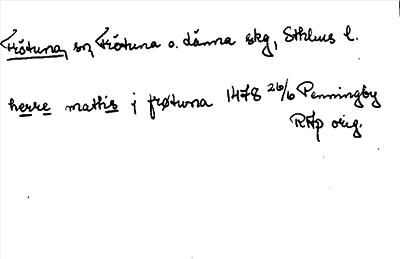 Frötuna, sn, Frötuna o. Länna skg, Sthlms l.
herre mathis j frøtwna 1478 26/6 Penningby
RAp orig.